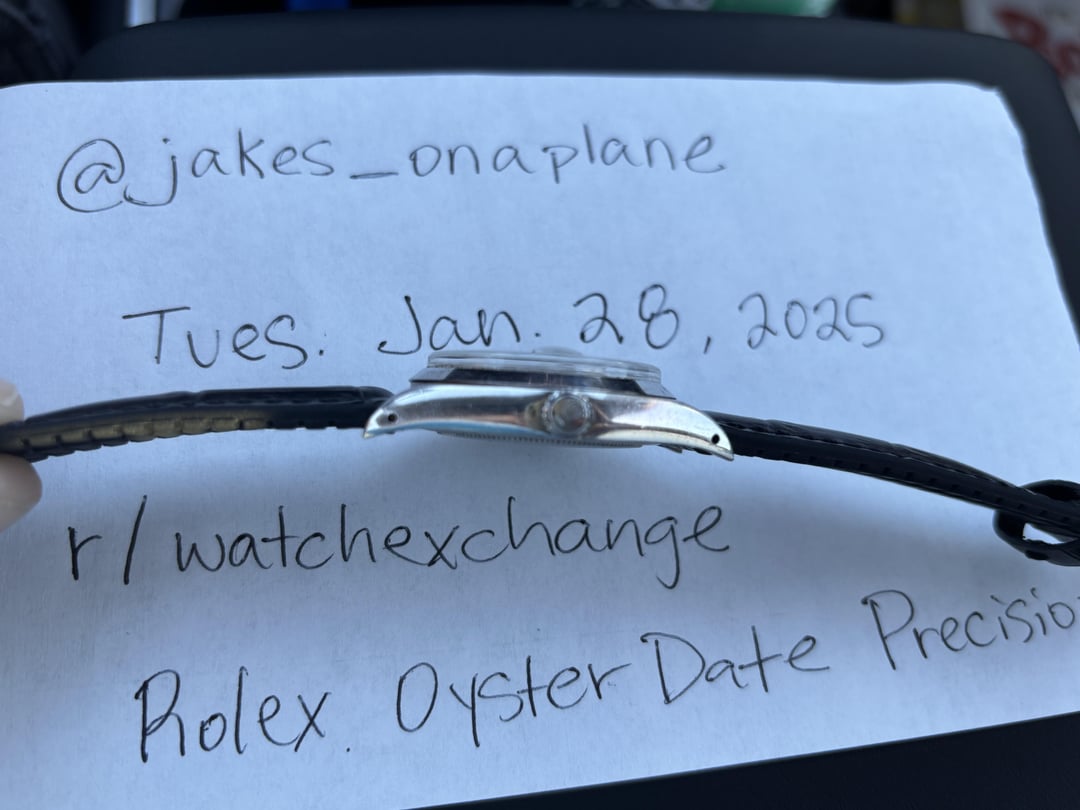 @jakes_onaplane
Tues. Jan. 28, 2025
r/watchexchange
Rolex. Oyster Date Precisio